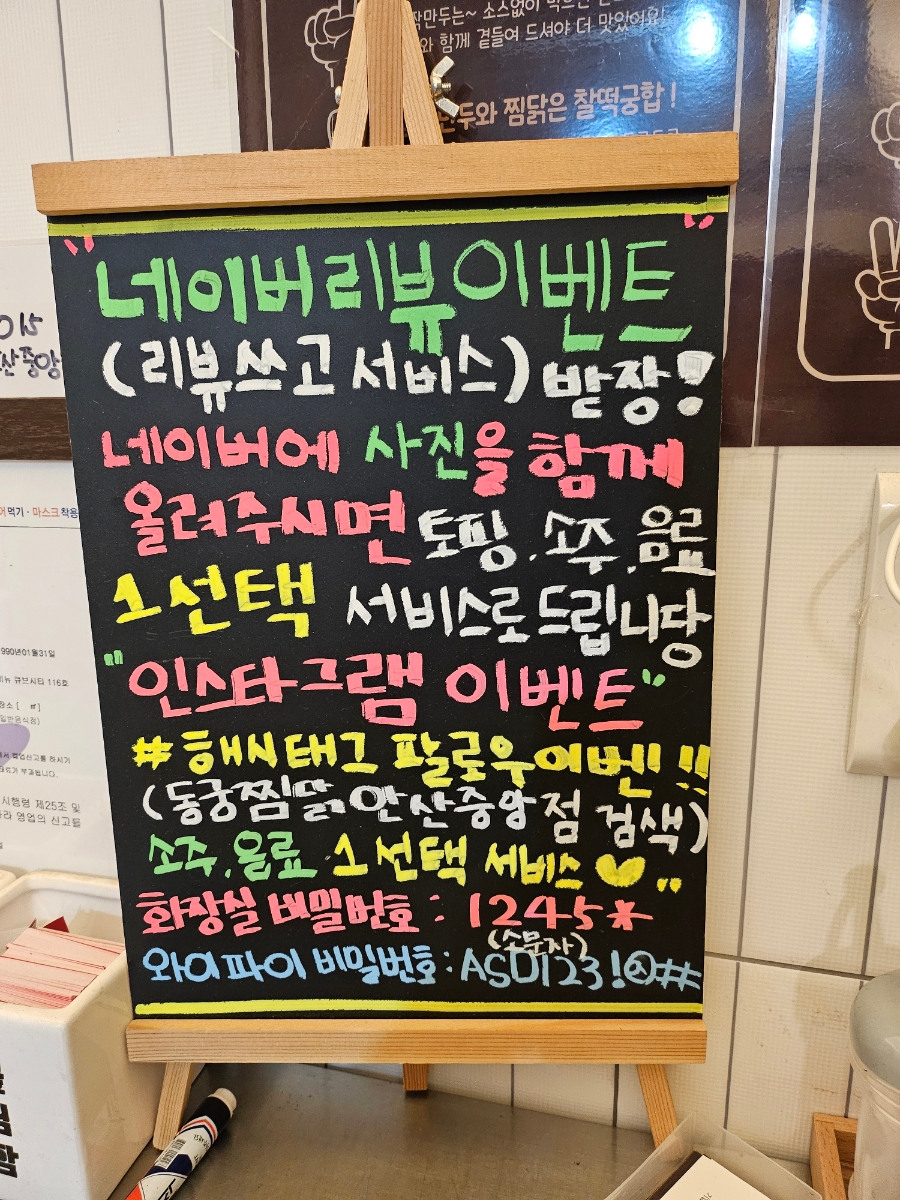 작만두는~ 소스없이
와 함께 곁들여 드셔야 더 맛있어요!
만두와 찜닭은 찰떡궁합!
"네이버리뷰이벤트"
(리뷰쓰고 서비스) 받장!
네이버에 사진을 함께
올려주시면 토핑.소주.음료
1선택 서비스로드립니당
"인스타그램 이벤트"
#해시태그 팔로우이벤!!!
(동궁찜닭안산중앙점 검색)
소주.음료 1선택 서비스♥"
화장실 비밀번호: 1245*
(소문자)
와이파이 비밀번호:ASD123!@##
015
산중앙
먹기·마스크착용
990년01월31일
큐브시티 116호
장소 [ ㎡]
일반음식점)
영업신고를 하시기
부과됩니다.
시행령 제25조 및
라 영업의 신고를